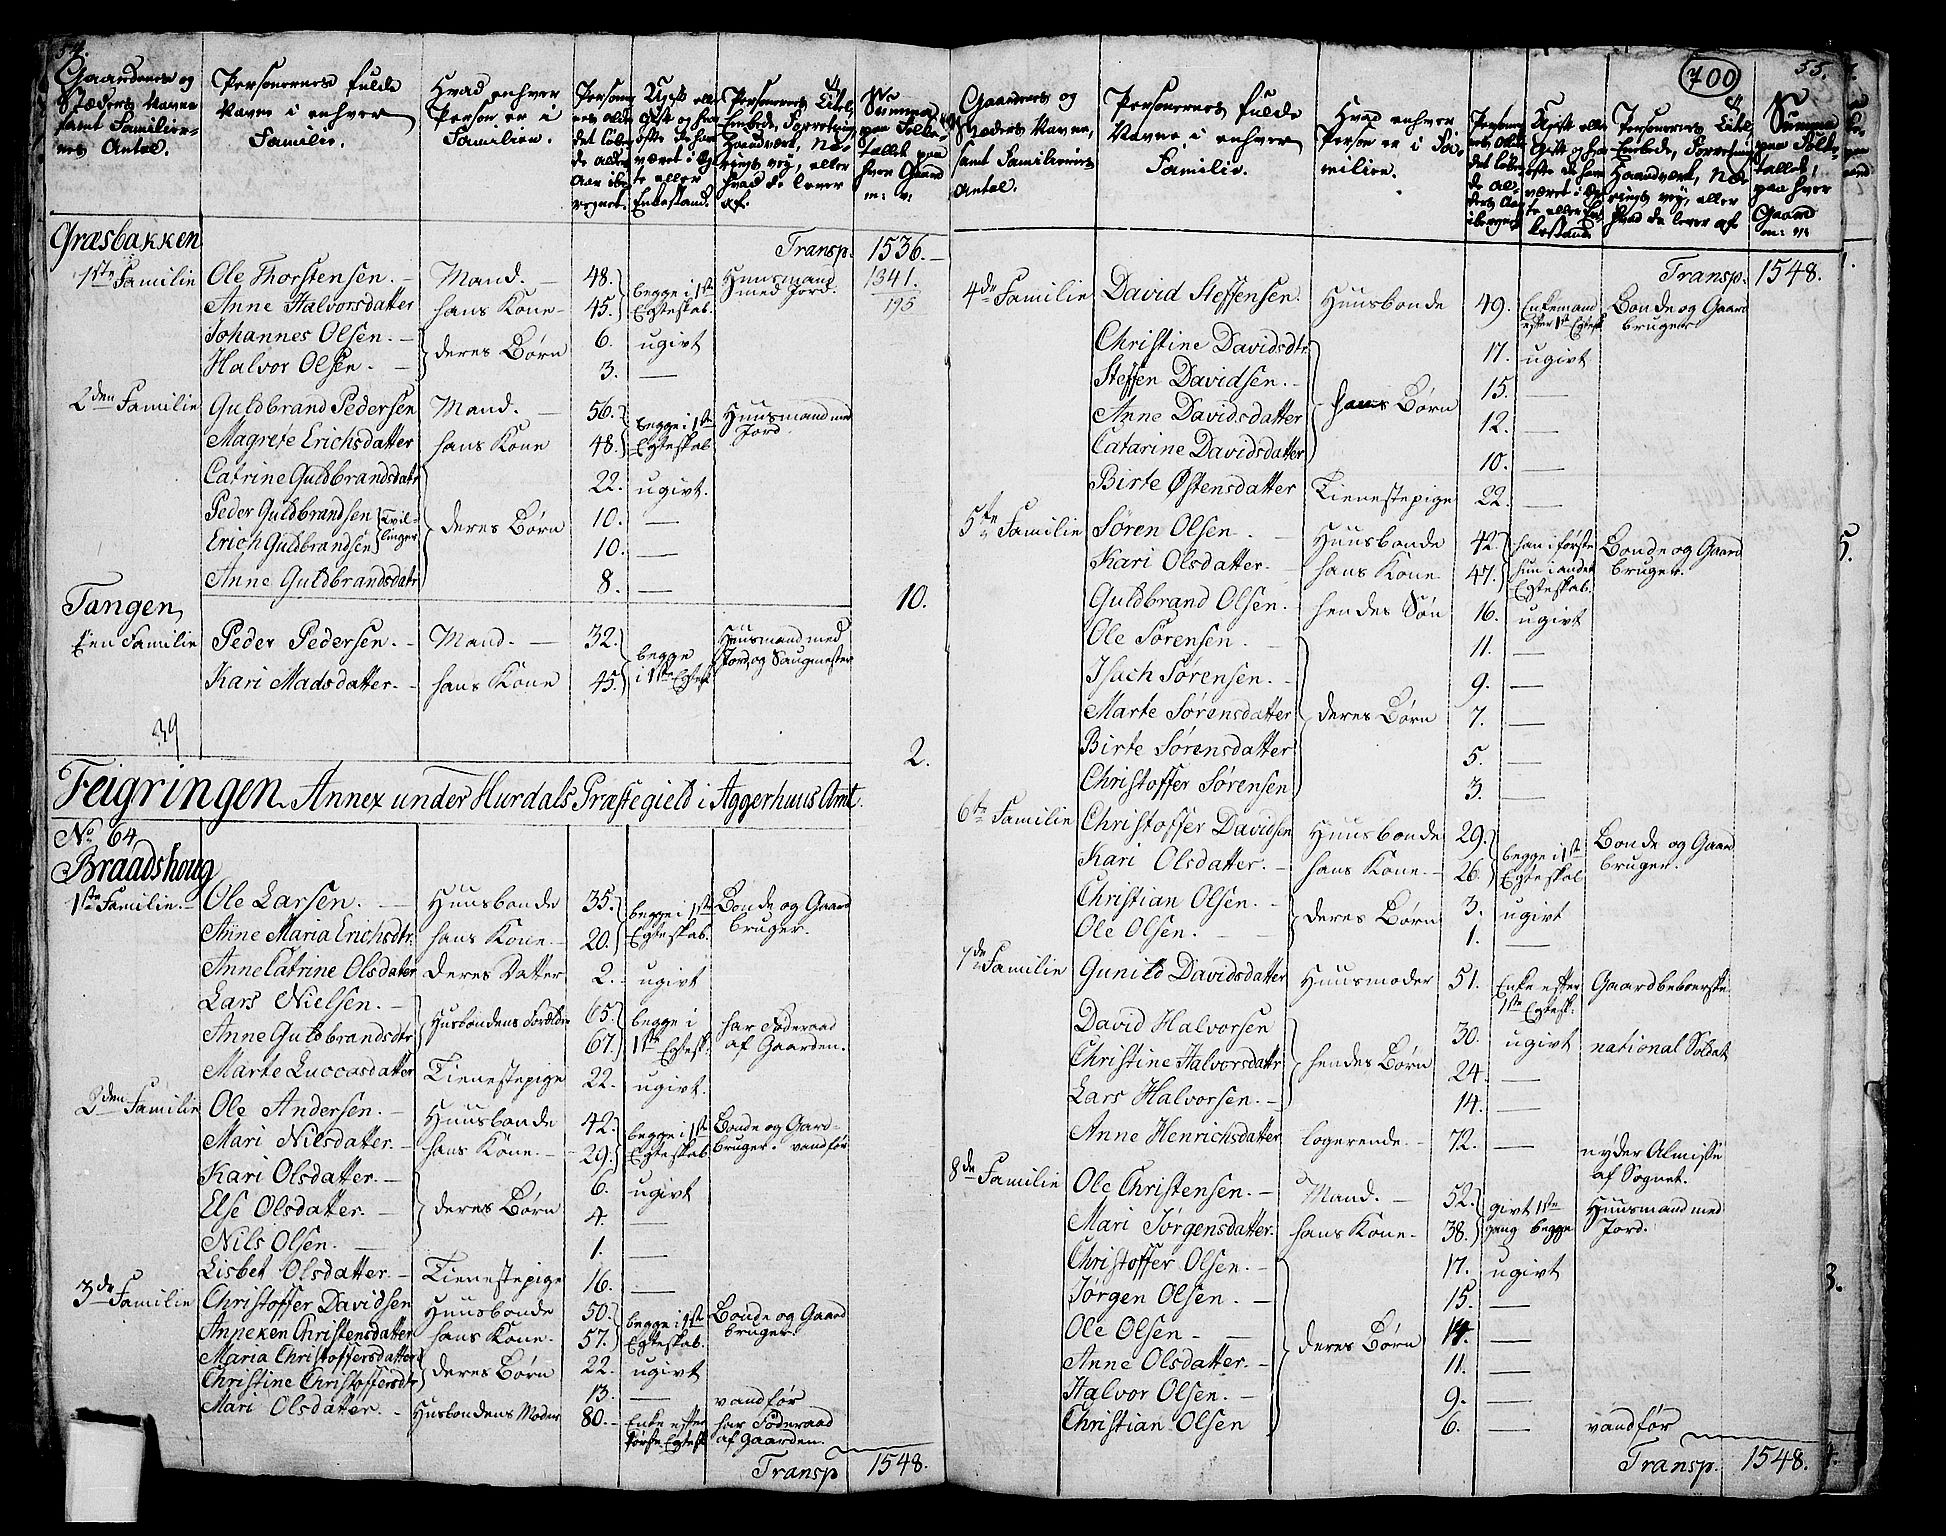 54.
Gaardenes og Stædets Navne samt Familiernes Antal.
Personernes fulde Navne i enhver Familie.
Hvad enhver Person er i Familien.
Personernes Alder det løbende Alders Aar iberegnet.
Ugift eller Gift og hvor ofte de have været i Egte eller Enkestand.
Personernes Titel, Embede, Forretning, Haandværk, Nærings vej, eller hvad de lever af.
Summa paa Folketallet paa hver Gaard m: v:
Græsbakken
Transp. 1536.
1ste Familie Ole Thorstensen. Mand. 48. begge i 1ste Egteskab. Huusmand med Jord. 1341.
Anne Halvorsdatter hans Kone 45. 195
Johannes Olsen. deres Børn 6. ugivt
Halvor Olsen. 3. —
2den Familie Guldbrand Pedersen Mand. 56. begge i 1ste Egteskab Huusmand med Jord
Magrete Erichsdatter hans Kone 48.
Catrine Guldbrandsdatr 22. ugivt.
Peder Guldbrandsen Tvillinger deres Børn 10. —
Erich Guldbrandsen 10. —
Anne Guldbrandsdatr 8. —
10.
Tangen
Een Familie Peder Pedersen. Mand. 32. begge i 1ste Egtesk. Huusmand med Jord og Saugmester
Kari Madsdatter. hans Kone 45.
39
2.
Feigringen Annex under Hurdals Præstegield i Aggerhuus Amt.
No 64
Braadshoug
1ste Familie. Ole Larsen. Huusbonde 35. begge i 1ste Egteskab. Bonde og Gaardbruger.
Anne Maria Erichsdtr. hans Kone. 20.
Anne Catrine Olsdater deres Datter 2. ugivt
Lars Nielsen. Husbondens Forældre 65. begge i 1ste Egtesk. har Føderaad af Gaarden.
Anne Guldbrandsdtr 67.
Marte Luccasdatter Tienestepige 22. ugivt.
2den Familie Ole Andersen. Huusbonde 42. begge i 1ste Egteskab Bonde og Gardbruger. vanfør
Mari Nilsdatter. hans Kone. 29.
Kari Olsdatter. 6. ugivt
Else Olsdatter. deres Børn 4. —
Nils Olsen. 1. —
Lisbet Olsdatter. Tienestepige 16. —
3de Familie Christoffer Davidsen Huusbonde 50. begge i 1ste Egteskab. Bonde og Gaardbruger.
Anneken Christensdatter hans Kone. 57.
Maria Christoffersdatter deres Børn 22. ugivt
Christine Christoffersdtr 13. — vandfør
Mari Olsdatter. Husbondens Moder 80. Enke efter første Egtesk har Føderaad af Gaarden.
Transp 1548.
700
55.
Gaardenes og Stædets Navne, samt Familiernes Antal.
Personernes fulde Navne i enhver Familie.
Hvad enhver Person er i Familien.
Personernes Alder det løbende Alders Aar iberegnet
Ugift eller Gift og hvor ofte de have været i Egte eller Enkestand
Personernes Titel, Embede, Forretning, Haandværk, Nærings vej, eller hvad de lever af
Summa paa Folketallet, paa hver Gaard m: v:
Transp. 1548.
4de Familie David Steffensen. Huusbonde 49. Enkemand efter 1ste Egtesk. Bonde og Gaardbruger
Christine Davidsdtr 17. ugivt
Steffen Davidsen. hans Børn 15. —
Anne Davidsdatter 12. —
Catarine Davidsdatter 10. —
Birte Østensdatter Tienestepige 22. —
5te Familie Søren Olsen Huusbonde 42. han i første hun i andet Egteskab. Bonde og Gaardbruger.
Kari Olsdatter. hans Kone 47.
Guldbrand Olsen. hendes Søn 16. ugivt
Ole Sørensen. 11. —
Isach Sørensen. 9. —
Marte Sørensdatter deres Børn 7. —
Birte Sørensdatter 5. —
Christoffer Sørensen 3. —
6te Familie Christoffer Davidsen Huusbonde 29. begge i 1ste Egteskab Bonde og Gaardbruger.
Kari Olsdatter. hans Kone. 26.
Christian Olsen. deres Børn 3. ugivt
Ole Olsen. 1. —
7de Familie Gunild Davidsdatter Huusmoder 51. Enke efter 1ste Egtesk. Gaardbeboerske
David Halvorsen 30. ugivt national Soldat
Christine Halvorsdattr hendes Børn 24. —
Lars Halvorsen. 14. —
Anne Henrichsdatter logerende. 72. — nyder Almisse af Sognet.
8de Familie Ole Christensen. Mand. 52. givt 1ste gang begge Huusmand med Jord.
Mari Jørgensdatter. hans Kone. 38.
Christoffer Olsen. 17. ugivt
Jørgen Olsen. 15. —
Ole Olsen deres Børn 14. —
Anne Olsdatter. 11. —
Halvor Olsen. 9. —
Christian Olsen 6. — vandfør
Transp. 1548.
1.
5.
3.
4.